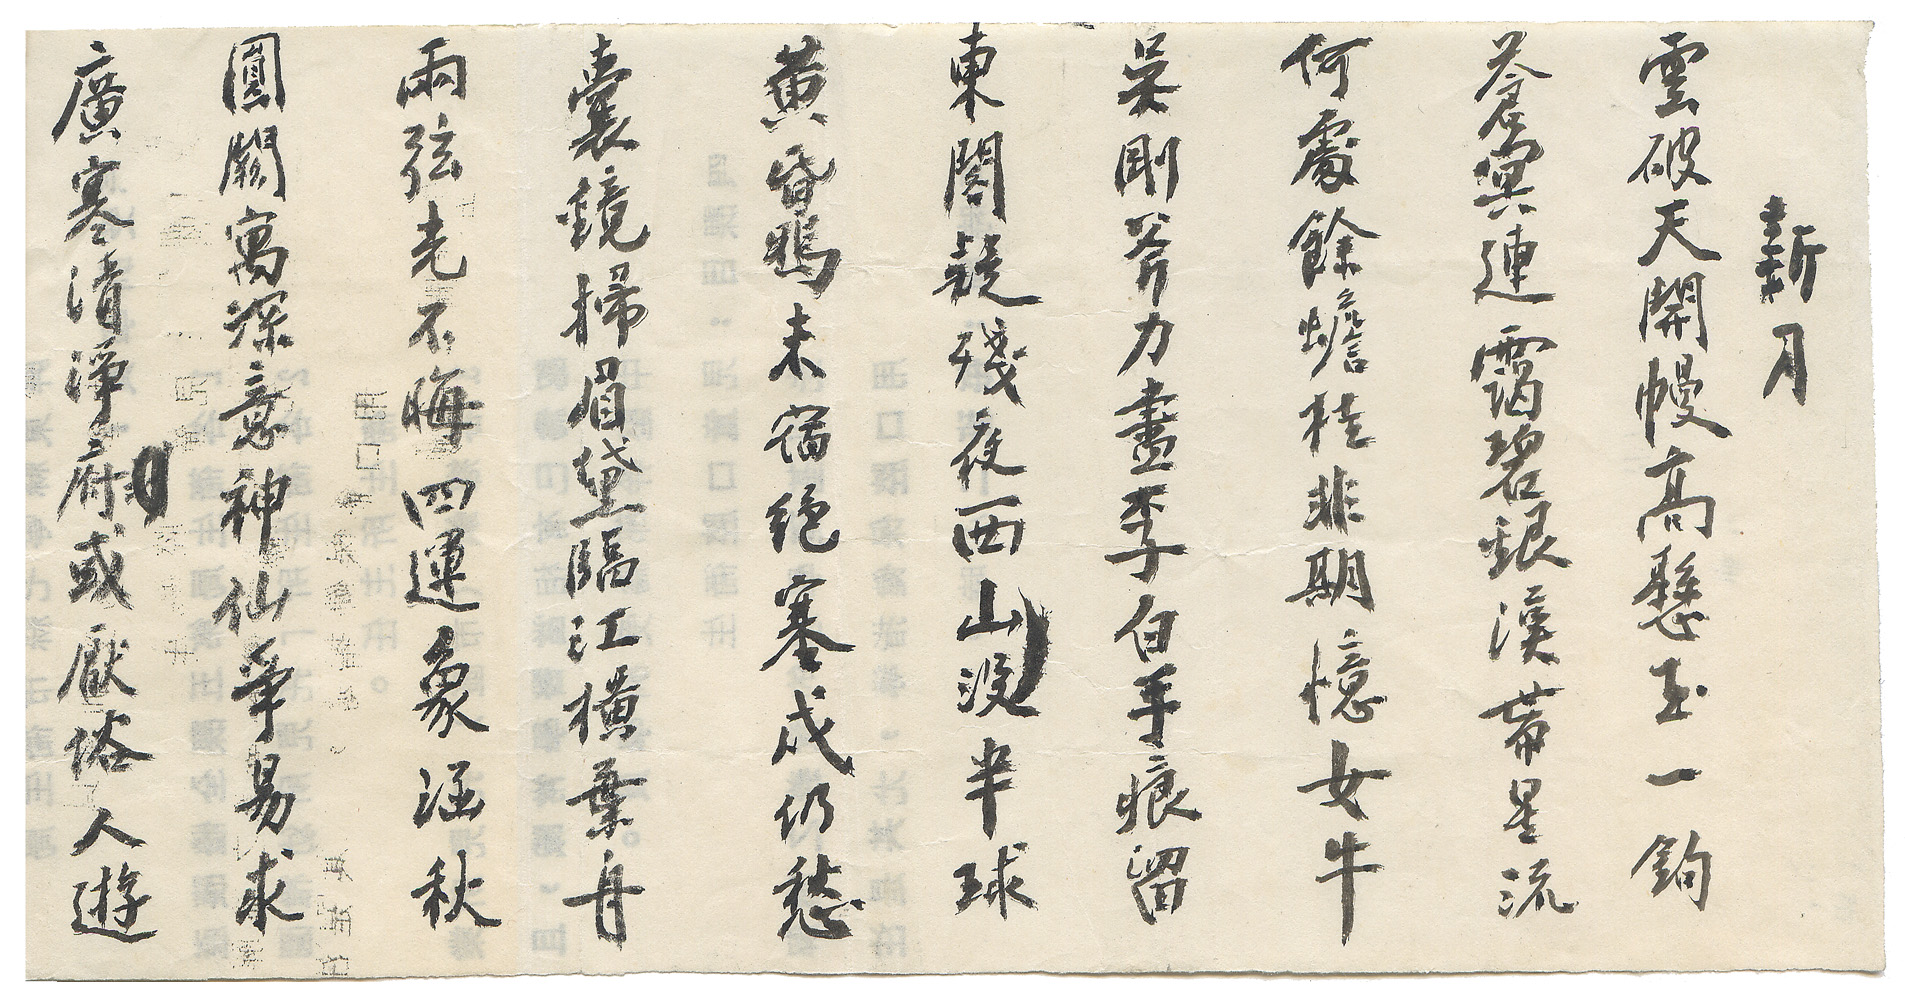 新月
雲破天開幔高懸玉一鈎
蒼冥連靄碧銀漢帶星流
何處餘蟾桂非期憶女牛
吴剛斧力盡李白手痕留
東閣疑殘夜西山没半球
黄昏鴉未宿絶塞戍仍愁
囊鏡掃眉黛臨江横葉舟
兩弦光不晦四運象涵秋
圓闕寓深意神仙爭易求
廣寒清淨府或厭俗人遊